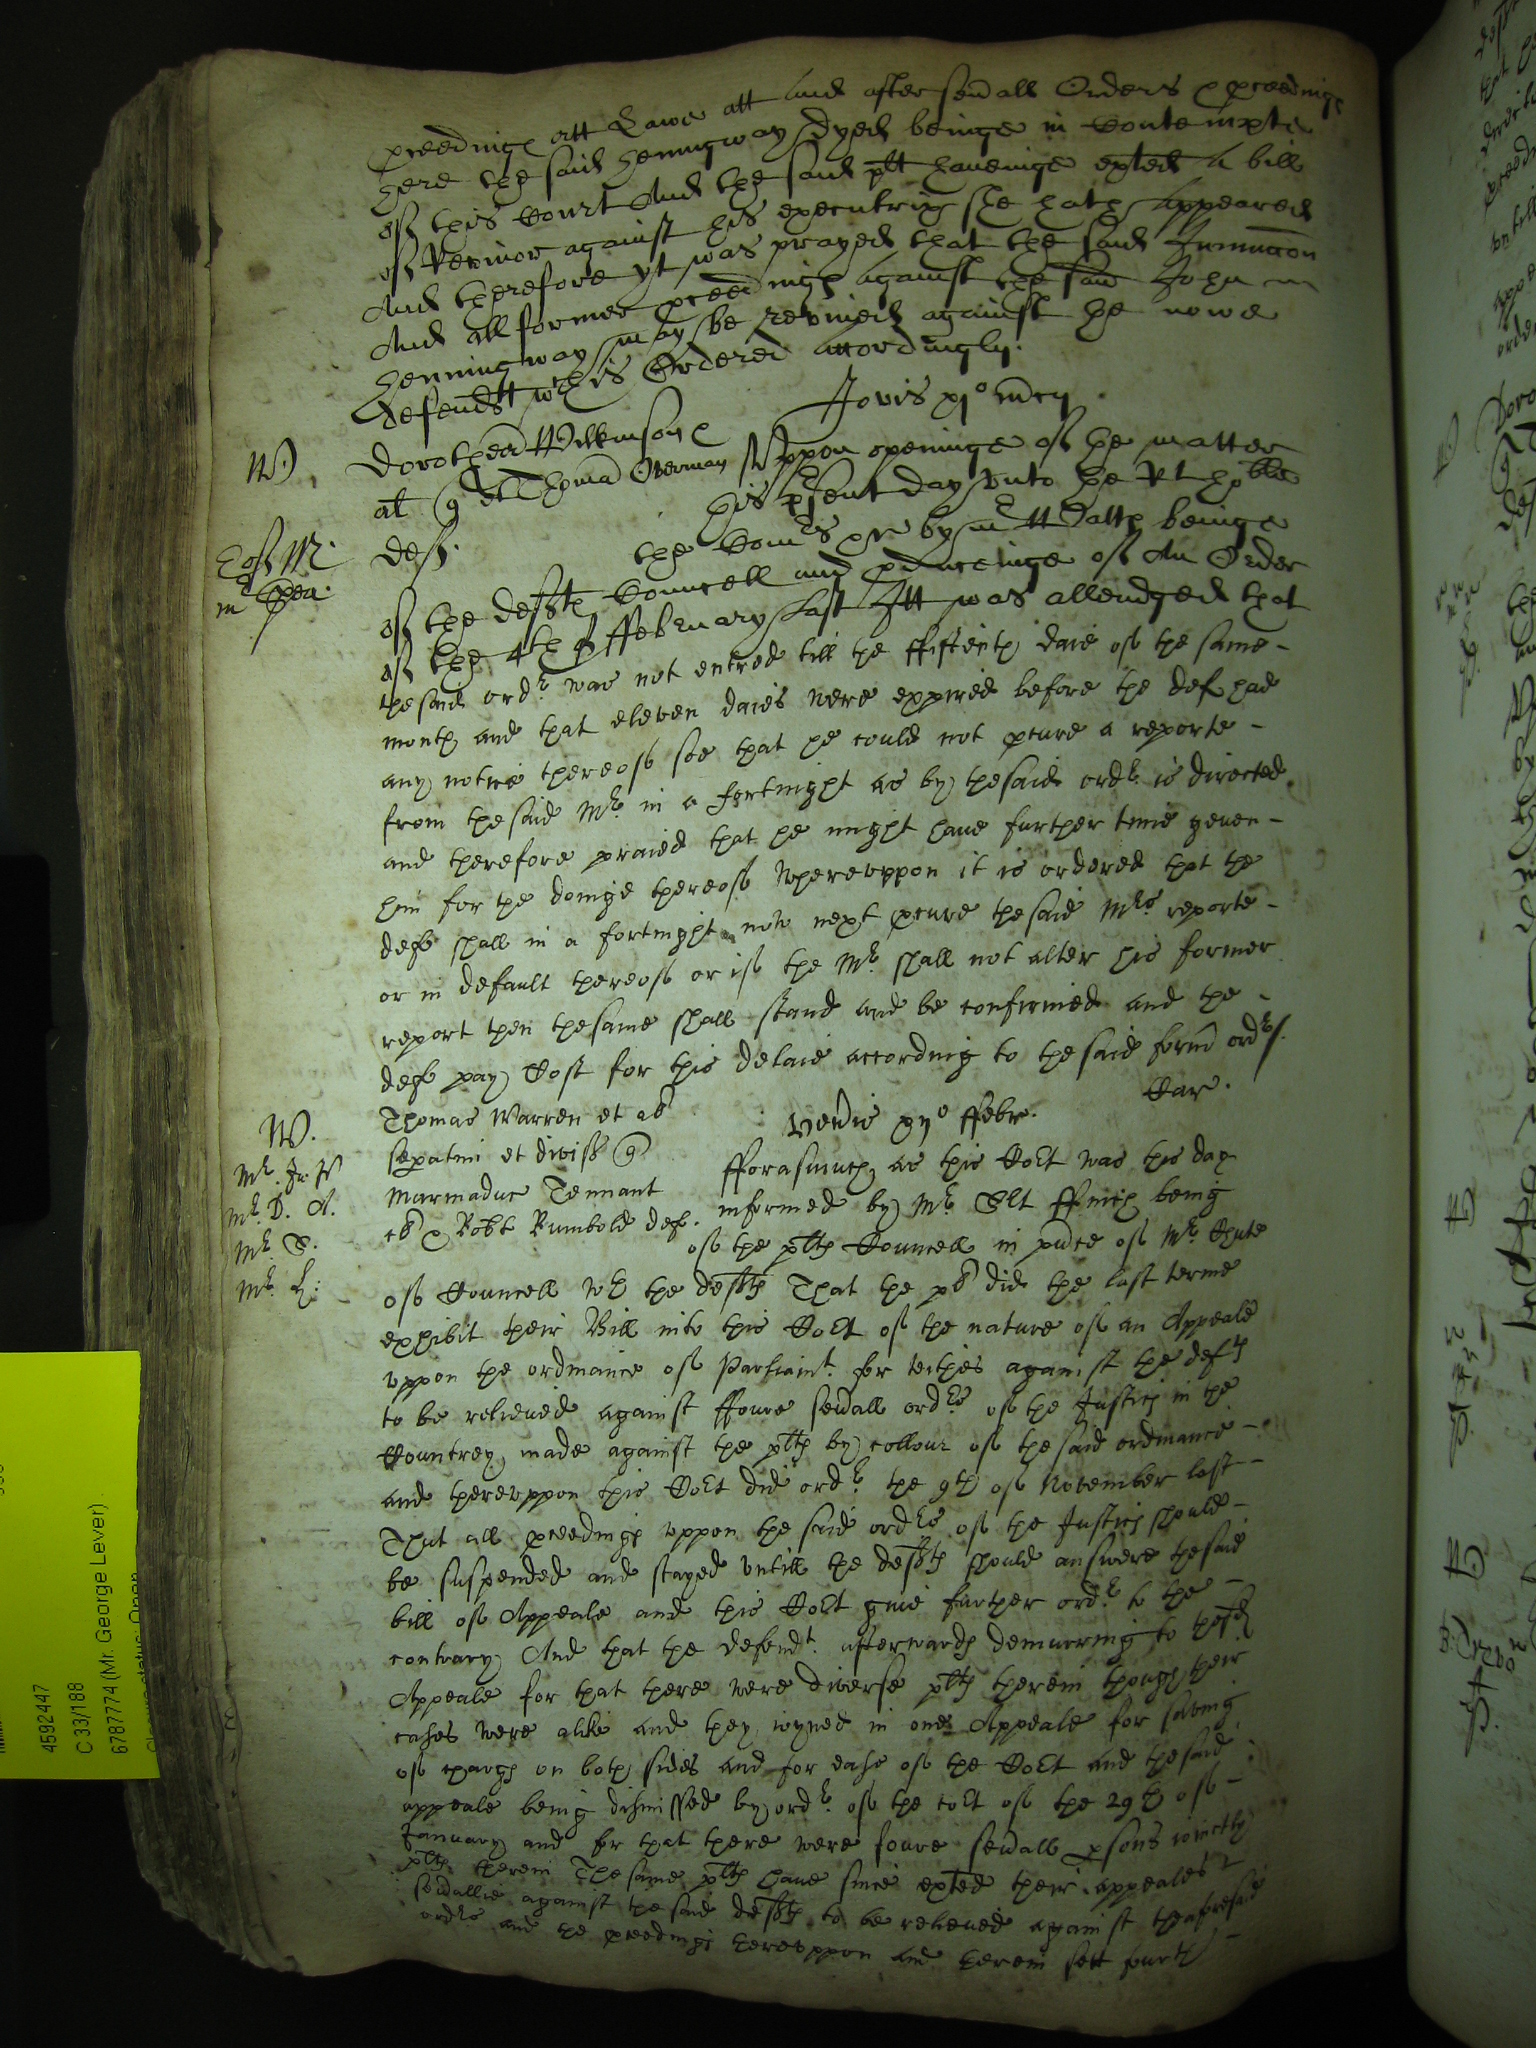 pceedings att Lawe att and after sevall Orders & pceedings
here the said Heningway dyed beinge in Contempte
of this Court And the said plt haveinge exted a bill
of Revivor against his executrix she hath appeared
And therefore yt was prayed that the said Iniunccon
And all former pceedings against the said John
Henningway may be revived against the nowe
defendt wch is Ordered accordingly.
Jovis xjo
W.
Dorothea Wilkinson
at Thoma Overman Uppon openinge of the matter
def. this psent day unto the Rt hoble
the Comrs by beinge
of the defts Councell and pducinge of An Order
of the 4th of ffebruary last Itt was alleadged that
the said ordr was not entred till the ffifteenth daie of the same
month and that eleven daies were expired before the def had
any notice thereof soe that he could not pcure a reporte
from the said Mr. in a fortnight as by the said ordr is directed
and therefore praied that he might have further time geven
him for the doinge thereof Whereuppon it is ordered that the
deft shall in a fortnight now next pcure the said Mrs reporte
or in default thereof or if the Mr. shall not alter his former
report then the same shall stand and be confirmed and the
deft pay Cost for this delaie according to the said form ordrs.
W.
Thomas Warren et al
Veneris ffebr.
sepatim et divisim
fforasmuch as this Cort was this day
Marmaduc Tennant
informed by Mr. ffinch being
al & Robt Rumbold def.
of the plts Councell in pnce of Mr. Chute
Mr. S.
Mr. L:
of Councell wth the defts That the pl did the last terme
exhibit their Bill into this Cort of the nature of an Appeale
uppon the ordinance of Parliamt. for teithes against the defts
to be releived against ffoure sevall ordrs of the Justices in the
Countrey made against the plts by collour of the said ordinance
and thereuppon this Cort did ordr the 9th of November last
That all pceedings uppon the said ordrs of the Justices should
be suspended and stayed untill the defts should answere the said
bill of Appeale and this Cort give further ordr to the
contrary And that the defendt. afterwards demurring to the sd
Appeale for that there were diverse plts therein though their
cases were alike and they ioyned in one Appeale for saving
of charges on both sides and for ease of the Cort and the said
appeale being dismissed by ordr. of the cort of the 29th of
January and for that there were foure sevall psons ioinctly
plts therein The same plts have since exted their appeales
sevallie against the said defts to be releeved against the aforesaid
ordrs and the pceedings thereuppon and therein sett fourth
4592447
C 33/188
67877 74 (Mr. George Lever)